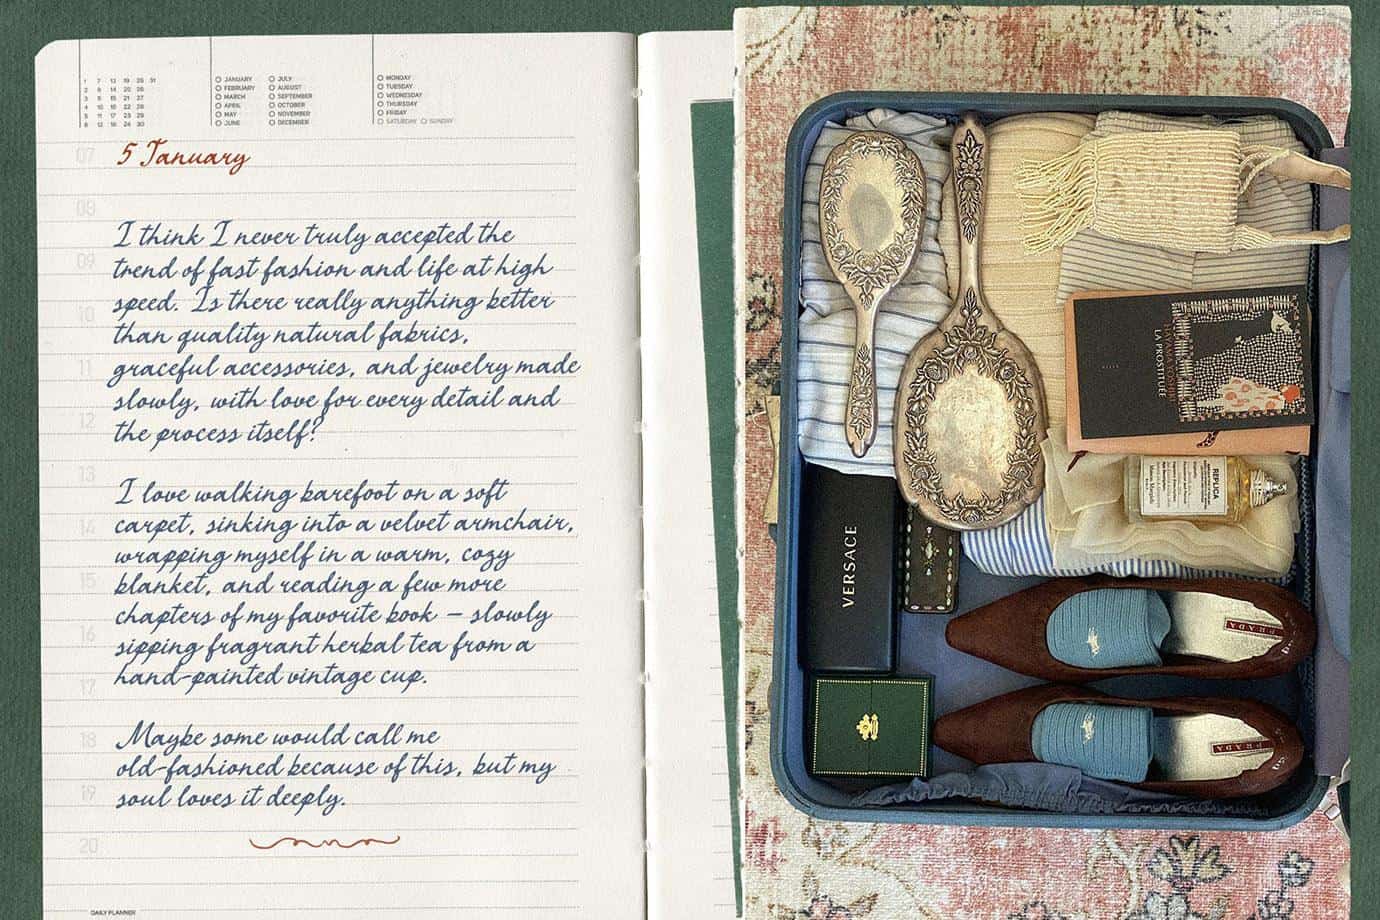 1 7 13 19 25 31
2 8 14 20 26
3 9 15 21 27
4 10 16 22 28
5 11 17 23 29
6 12 18 24 30
JANUARY
FEBRUARY
MARCH
APRIL
MAY
JUNE
JULY
AUGUST
SEPTEMBER
OCTOBER
NOVEMBER
DECEMBER
MONDAY
TUESDAY
WEDNESDAY
THURSDAY
FRIDAY
SATURDAY SUNDAY
07
5 January
08
I think I never truly accepted the
09
trend of fast fashion and life at high
speed. Is there really anything better
10
than quality natural fabrics,
11
graceful accessories, and jewelry made
slowly, with love for every detail and
12
the process itself?
13
I love walking barefoot on a soft
14
carpet, sinking into a velvet armchair,
wrapping myself in a warm, cozy
15
blanket, and reading a few more
chapters of my favorite book – slowly
16
sipping fragrant herbal tea from a
hand-painted vintage cup.
17
Maybe some would call me
18
old-fashioned because of this, but my
19
soul loves it deeply.
20
DAILY PLANNER
LA PROSTITUÉE
REPLICA
Maison Margiela
VERSACE
PRADA
PRADA